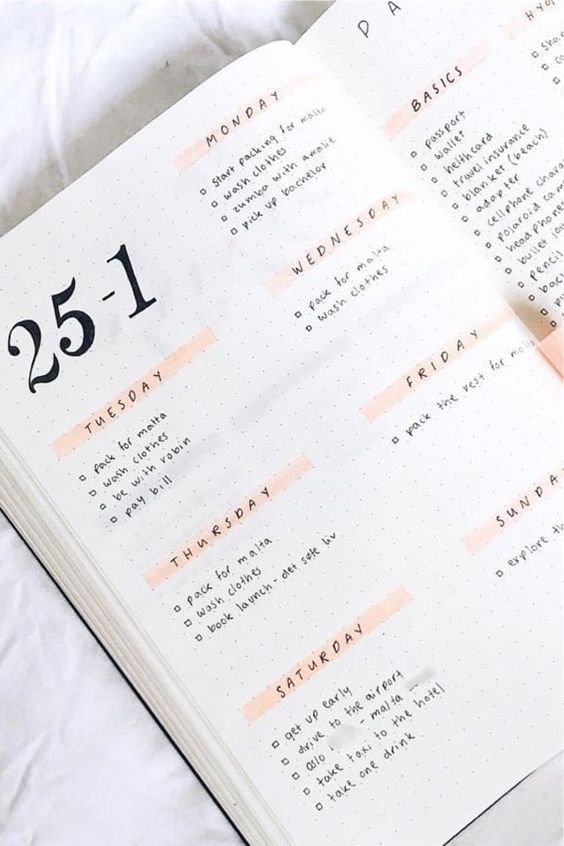 25-1
MONDAY
start packing for malta
wash clothes
zumba with amalie
pick up bachelor
TUESDAY
pack for malta
wash clothes
be with robin
pay bill
WEDNESDAY
pack for malta
wash clothes
THURSDAY
pack for malta
wash clothes
book launch - det sete liv
FRIDAY
pack the rest for malta
SATURDAY
get up early
drive to the airport
oslo - malta
take taxi to the hotel
take one drink
SUNDAY
explore
BASICS
passport
wallet
helthcard
travel insurance
blanket (beach)
adapter
cellphone
polaroid
headphones
bullet
pencil